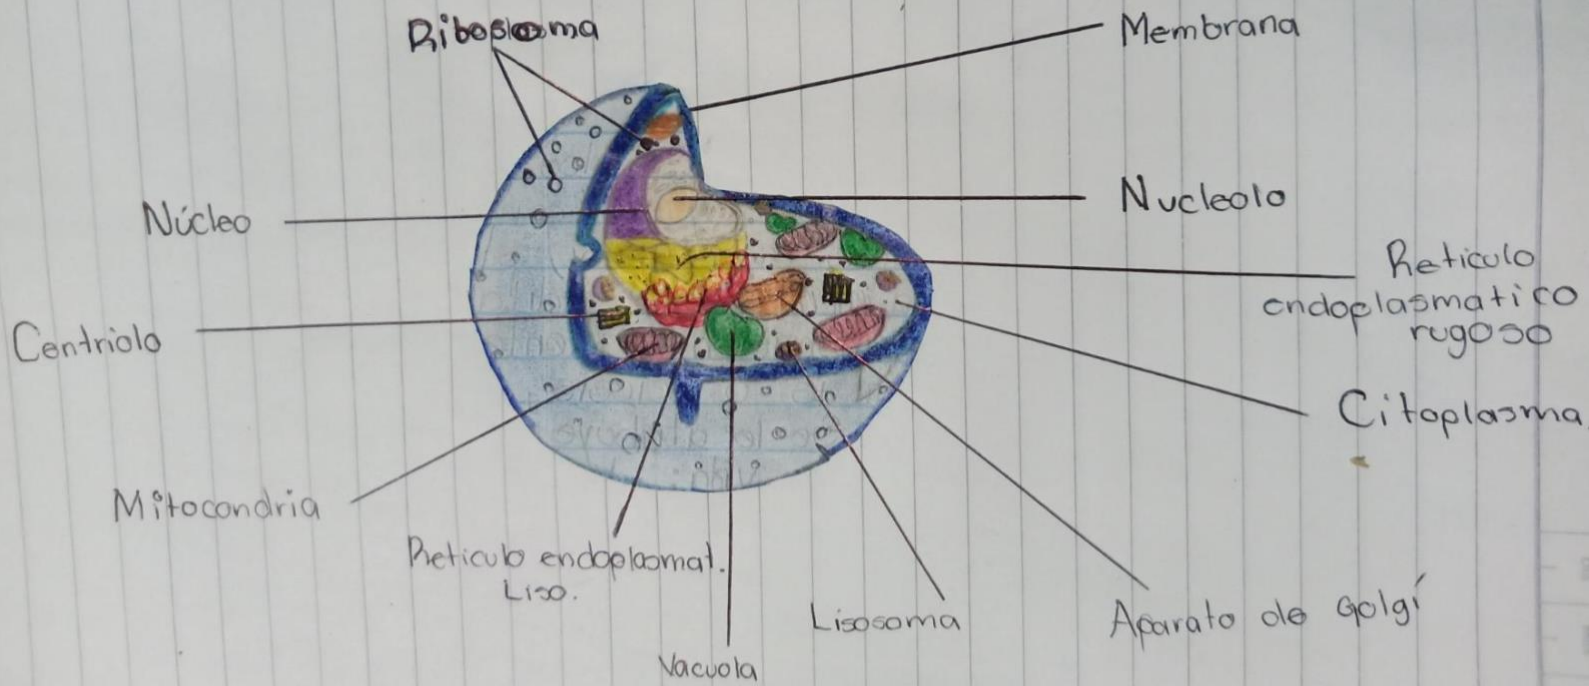 Ribosoma
Membrana
Núcleo
Nucleolo
Reticulo
endoplasmatico
rugoso
Centriolo
Citoplasma
Mitocondria
Reticulo endoplasmat.
Liso.
Lisosoma
Aparato de Golgí
Vacuola